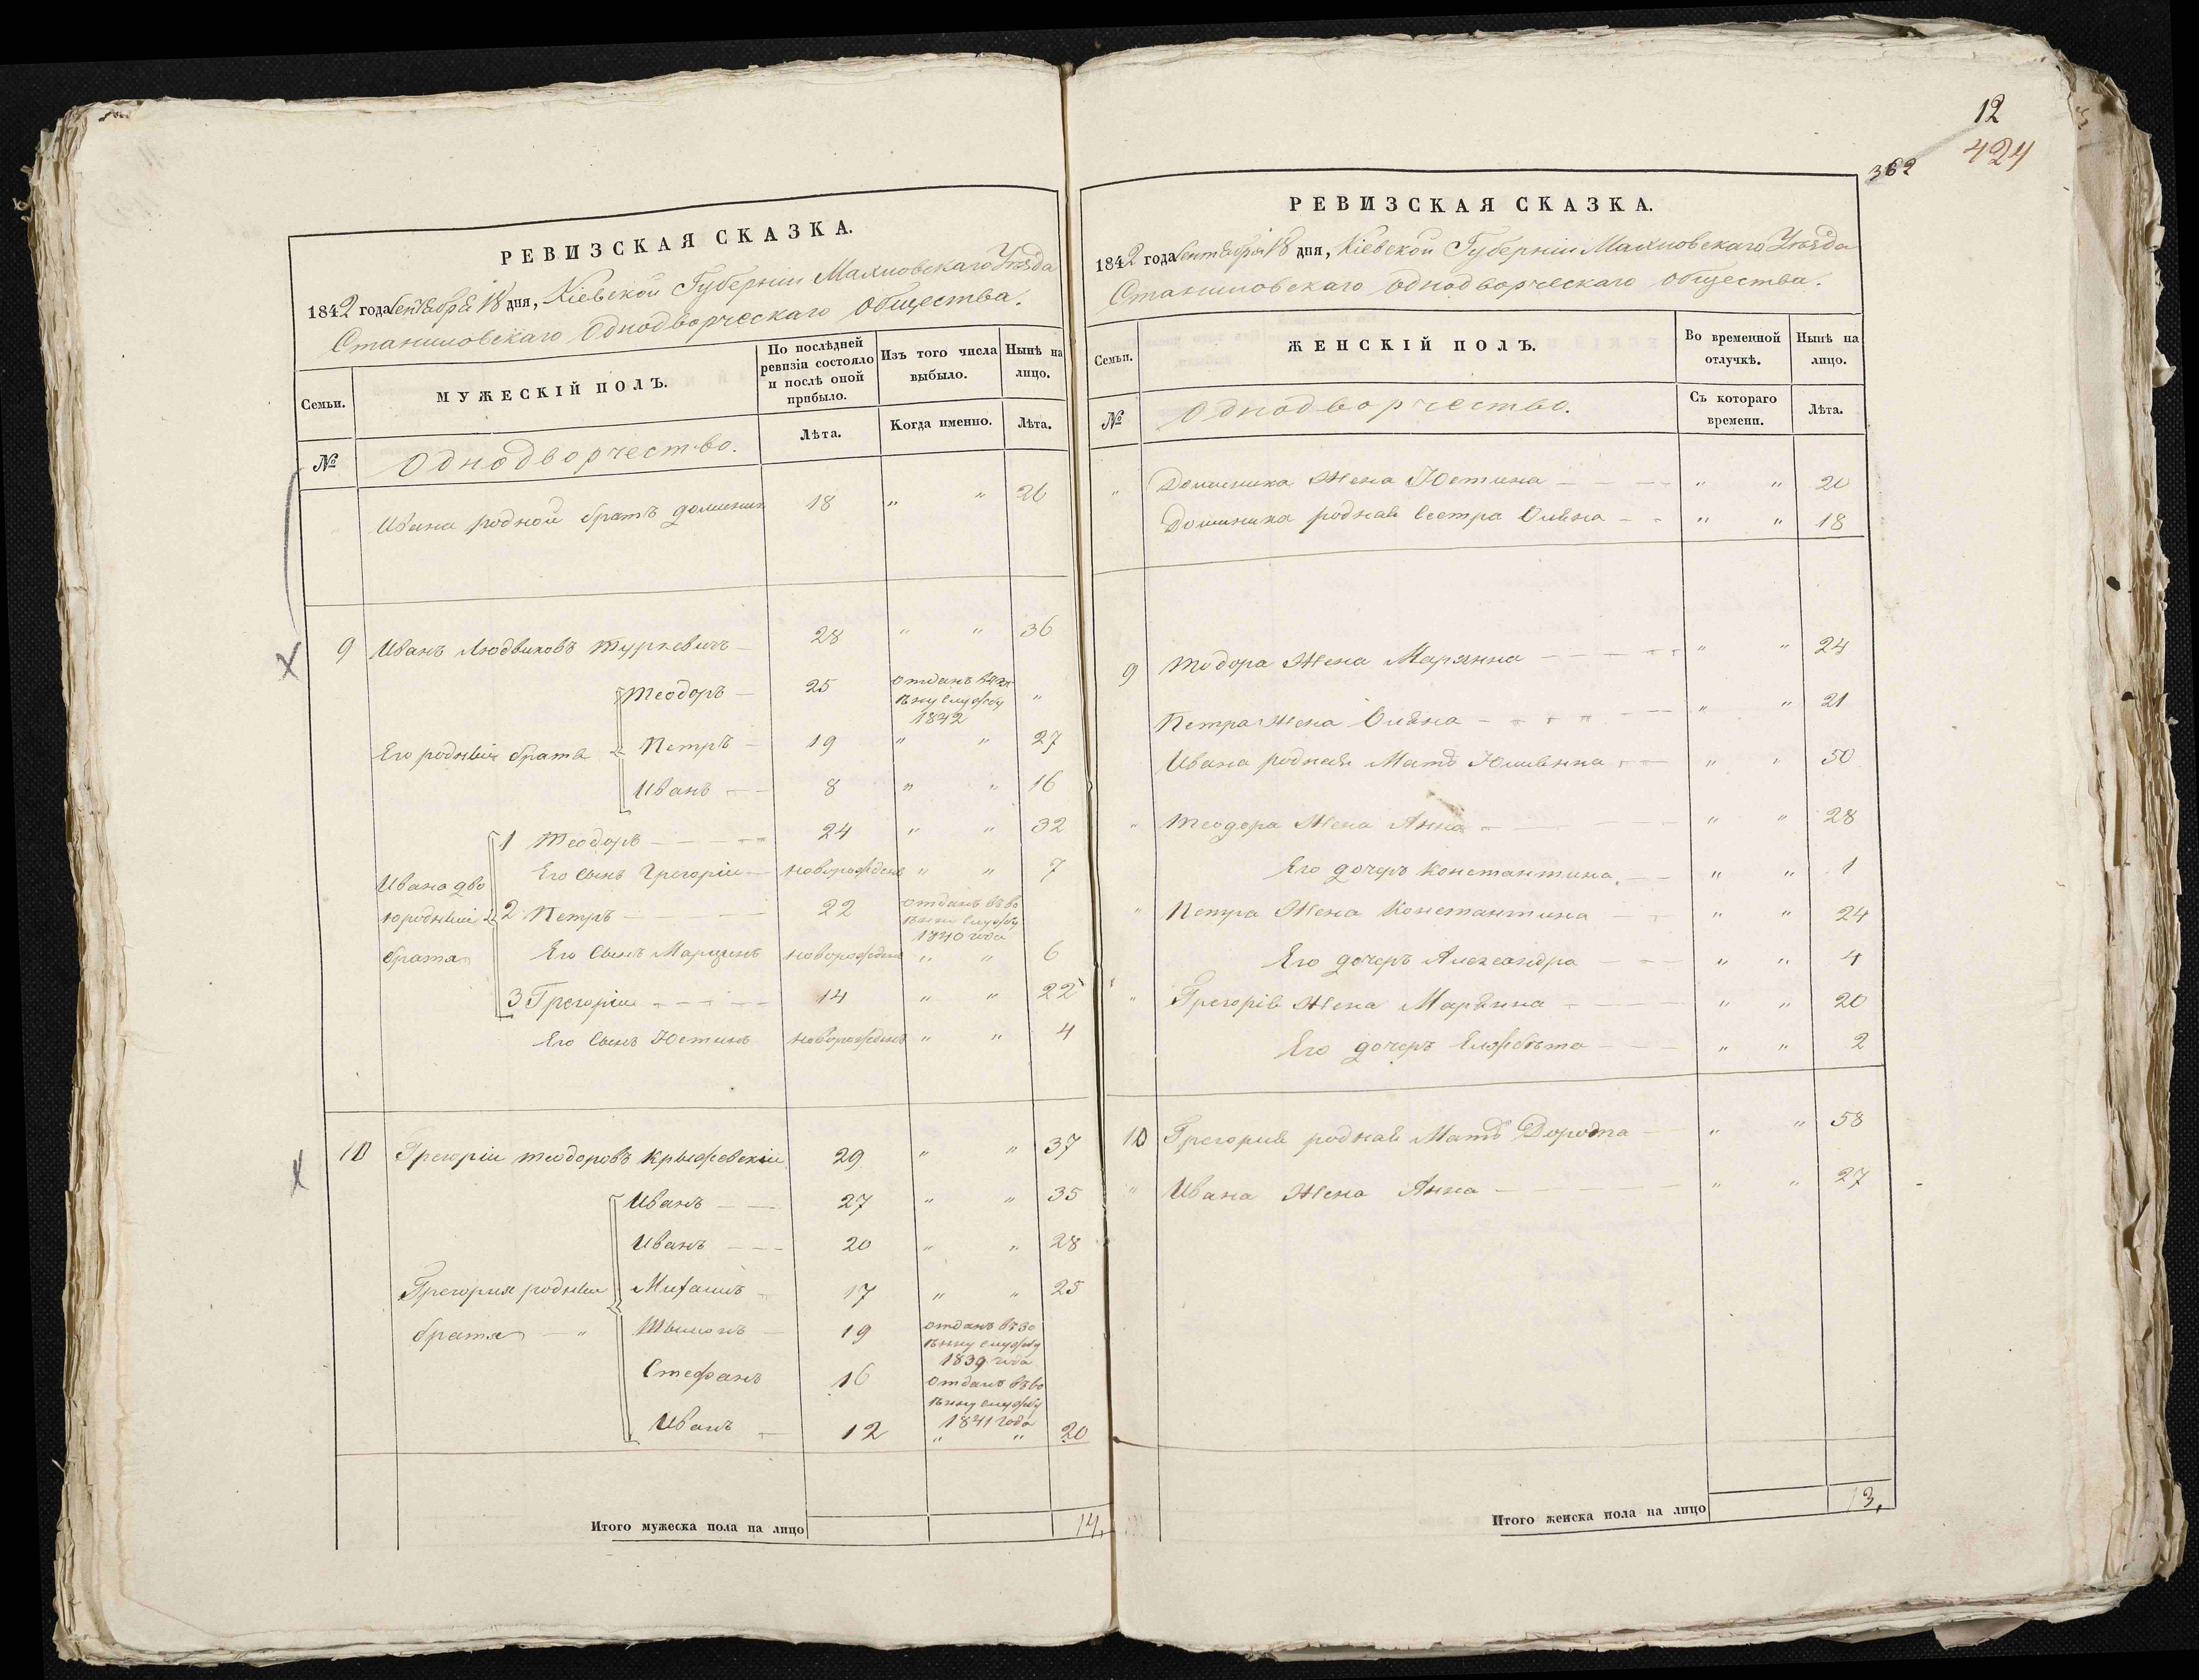 РЕВИЗСКАЯ СКАЗКА.
1842 года Сентября 18 дня, Кіевской Губерніи Махновскаго Уѣзда
Однодворческаго Общества.
Семьи. МУЖЕСКІЙ ПОЛЪ. По послѣдней ревизіи состояло и послѣ оной прибыло. Изъ того числа выбыло. Нынѣ на лицо.
№ Однодворчество. Лѣта. Когда именно. Лѣта.
Ивана родной братъ доминик 18 " " 26
9 Иванъ Людвиковъ Туркевичъ 28 " " 36
Теодоръ 25 отданъ
службу "
1842
Его родныи братя Петръ 19 " " 27
Иванъ 8 " " 16
1 Теодоръ 24 " " 32
Его сынъ Грегоріи новорожденъ " " 7
Ивана дво
юродныи 2 Петръ 22 отданъ въ во
службу
1840 года
братя Его Сынъ Марцинъ новорожденъ " " 6
3 Грегоріи 14 " " 22
Его Сынъ Юстинъ новорожденъ " " 4
10 Грегоріи теодоровъ Крыжевскіи 29 " " 37
Иванъ 27 " " 35
Иванъ 20 " " 28
Грегория родныи Михаилъ 17 " " 25
братя " Шымонъ 19 отданъ въ во
енну службу
1839 года
Стефанъ 16 отданъ въ во
енну службу
1841 года
Иванъ 12 " " 20
Итого мужеска пола на лицо 14.
12
424
362
РЕВИЗСКАЯ СКАЗКА.
1842 года Сентября 18 дня, Кіевской Губерніи Махновскаго Уѣзда
Однодворческаго Общества.
Семьи. ЖЕНСКІЙ ПОЛЪ. Во временной отлучкѣ. Нынѣ на лицо.
№ Однодворчество. Съ котораго времени. Лѣта.
" Доминика Жена Юстина " " 20
Доминика родная Сестра " " 18
9 Тодора Жена Марянна " " 24
Петра Жена " " 21
Ивана родная Мать " " 50
" Теодора Жена Анна " " 28
Его дочеръ Константина " " 1
" Петра Жена Константина " " 24
Его дочеръ Александра " " 4
" Грегорія Жена Марянна " " 20
Его дочеръ Елжбѣта " " 2
10 Грегория родная Мать Дорота " " 58
" Ивана Жена Анна " " 27
Итого женска пола на лицо 13.